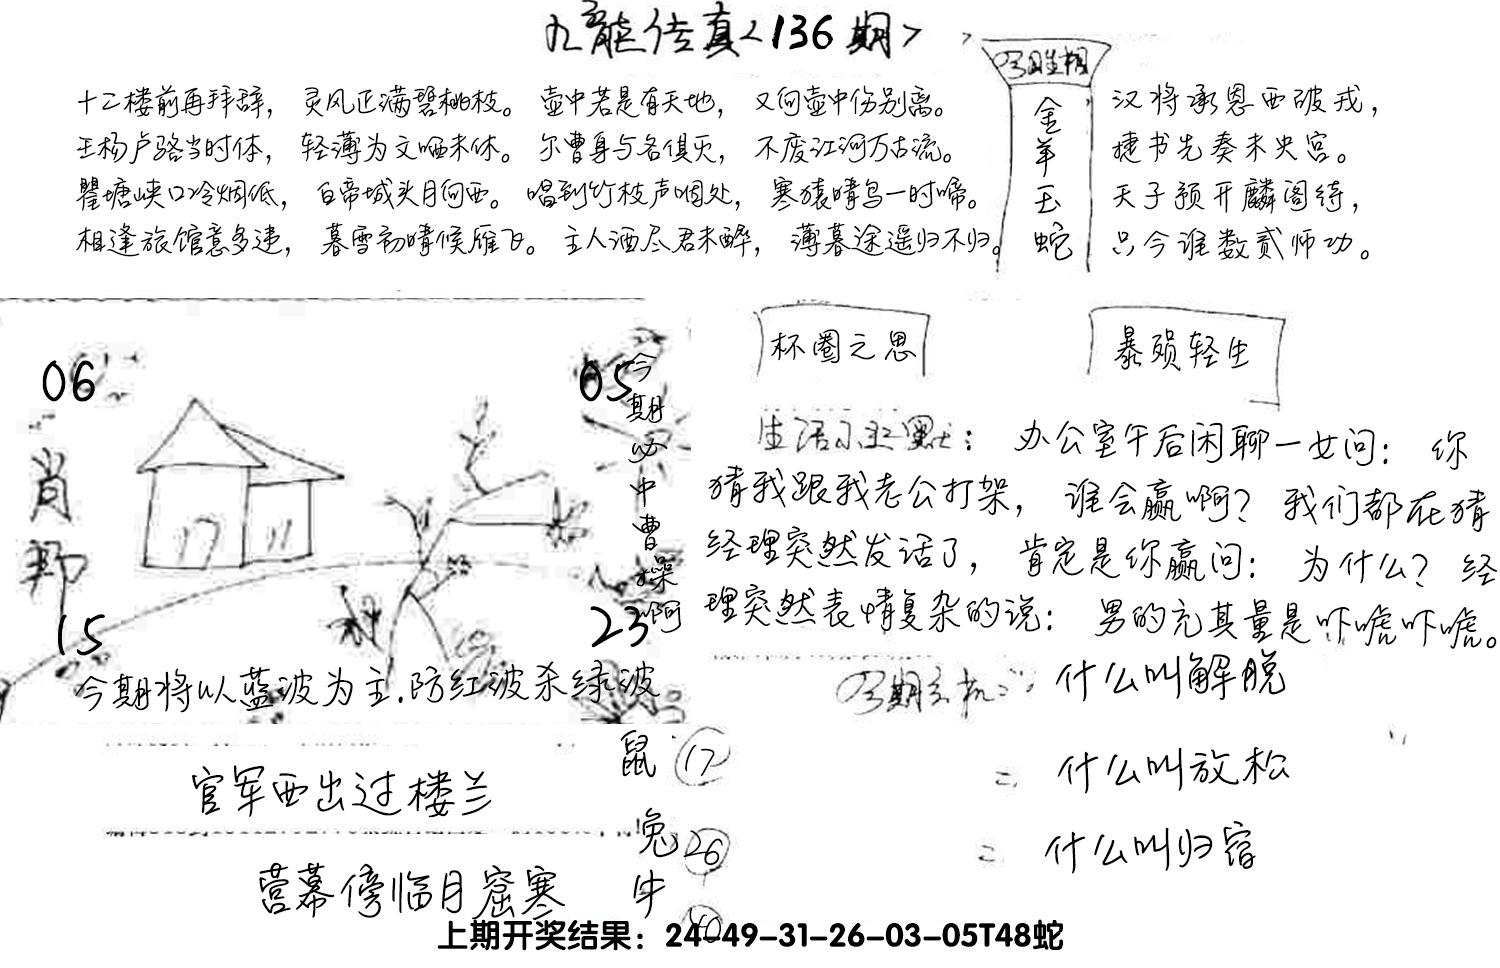 九龍传真<136期>
十二楼前再拜辞，灵风正满碧桃枝。壶中若是有天地，又向壶中伤别离。
王杨卢骆当时体，轻薄为文哂未休。尔曹身与名俱灭，不废江河万古流。
瞿塘峡口冷烟低，白帝城头月向西。唱到竹枝声咽处，寒猿晴鸟一时啼。
相逢旅馆意多违，暮雪初晴候雁飞。主人酒尽君未醉，薄暮途遥归不归。
金羊玉蛇
汉将承恩西破戎，
捷书先奏未央宫。
天子预开麟阁待，
只今谁数贰师功。
06
05
肖
15
23
今期必中曹操啊
今期将以蓝波为主.防红波杀绿波
杯圈之思
暴殒轻生
生活小幽默：办公室午后闲聊一女问：你
猜我跟我老公打架，谁会赢啊？我们都在猜
经理突然发话了，肯定是你赢问：为什么？经
理突然表情复杂的说：男的充其量是吓唬吓唬。
什么叫解脱
= 什么叫放松
= 什么叫归宿
官军西出过楼兰
营幕傍临月窟寒
鼠 17
兔 26
牛 40
上期开奖结果：24-49-31-26-03-05T48蛇